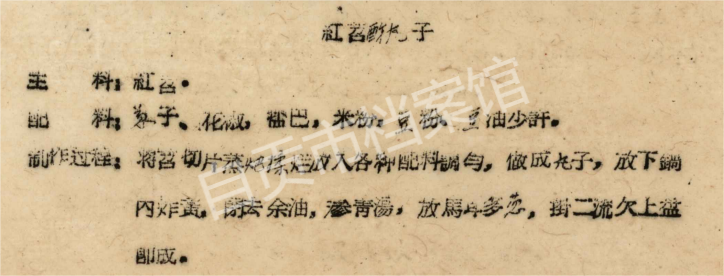 紅苕酥丸子
主　料：紅苕。
配　料：葱子、花椒，鹽巴，米粉，豆粉，豆油少許。
制作过程：将苕切片蒸𤆵揉烂放入各种配料調匀，做成丸子，放下鍋
內炸黃，閉去余油，滲青湯，放馬耳多葱，掛二流欠上盘
即成。
自贡市档案馆